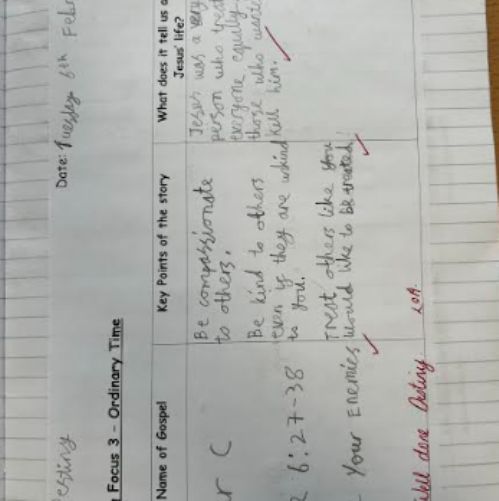 Date: Tuesday 6th Febr
Focus 3 – Ordinary Time
Name of Gospel
Key Points of the story
What does it tell us a
Jesus' life?
r C
6:27-38
Your Enemies
Be compassionate
to others.
Be kind to others
even if they are unkind
to you.
Treat others like you
would like to be treated!
Jesus was a very
person who treat
everyone equally
those who want
kill him.
Well done Destiny